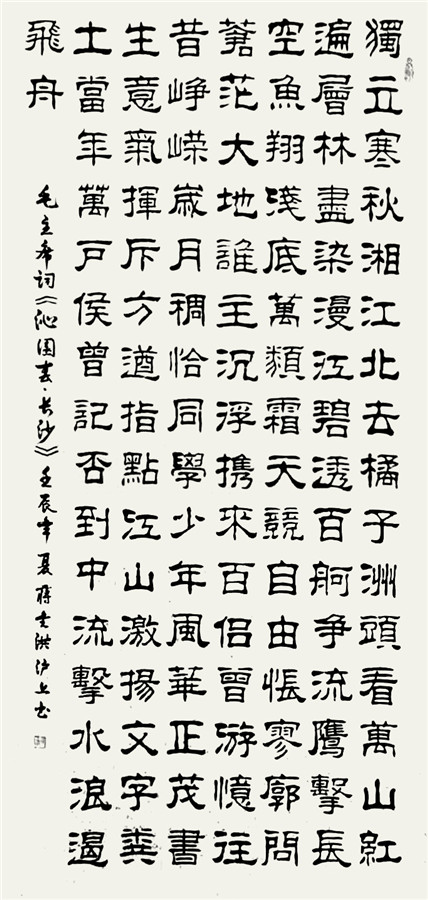 獨立寒秋湘江北去橘子洲頭看萬山紅
遍層林盡染漫江碧透百舸争流鷹擊長
空魚翔淺底萬類霜天競自由悵寥廓問
蒼茫大地誰主沉浮携來百侶曾游憶往
昔崢嶸歲月稠恰同學少年風華正茂書
生意氣揮斥方遒指點江山激揚文字糞
土當年萬戶侯曾記否到中流擊水浪遏
飛舟
毛主席词《沁園春·长沙》壬辰年夏蒋洪沪上书